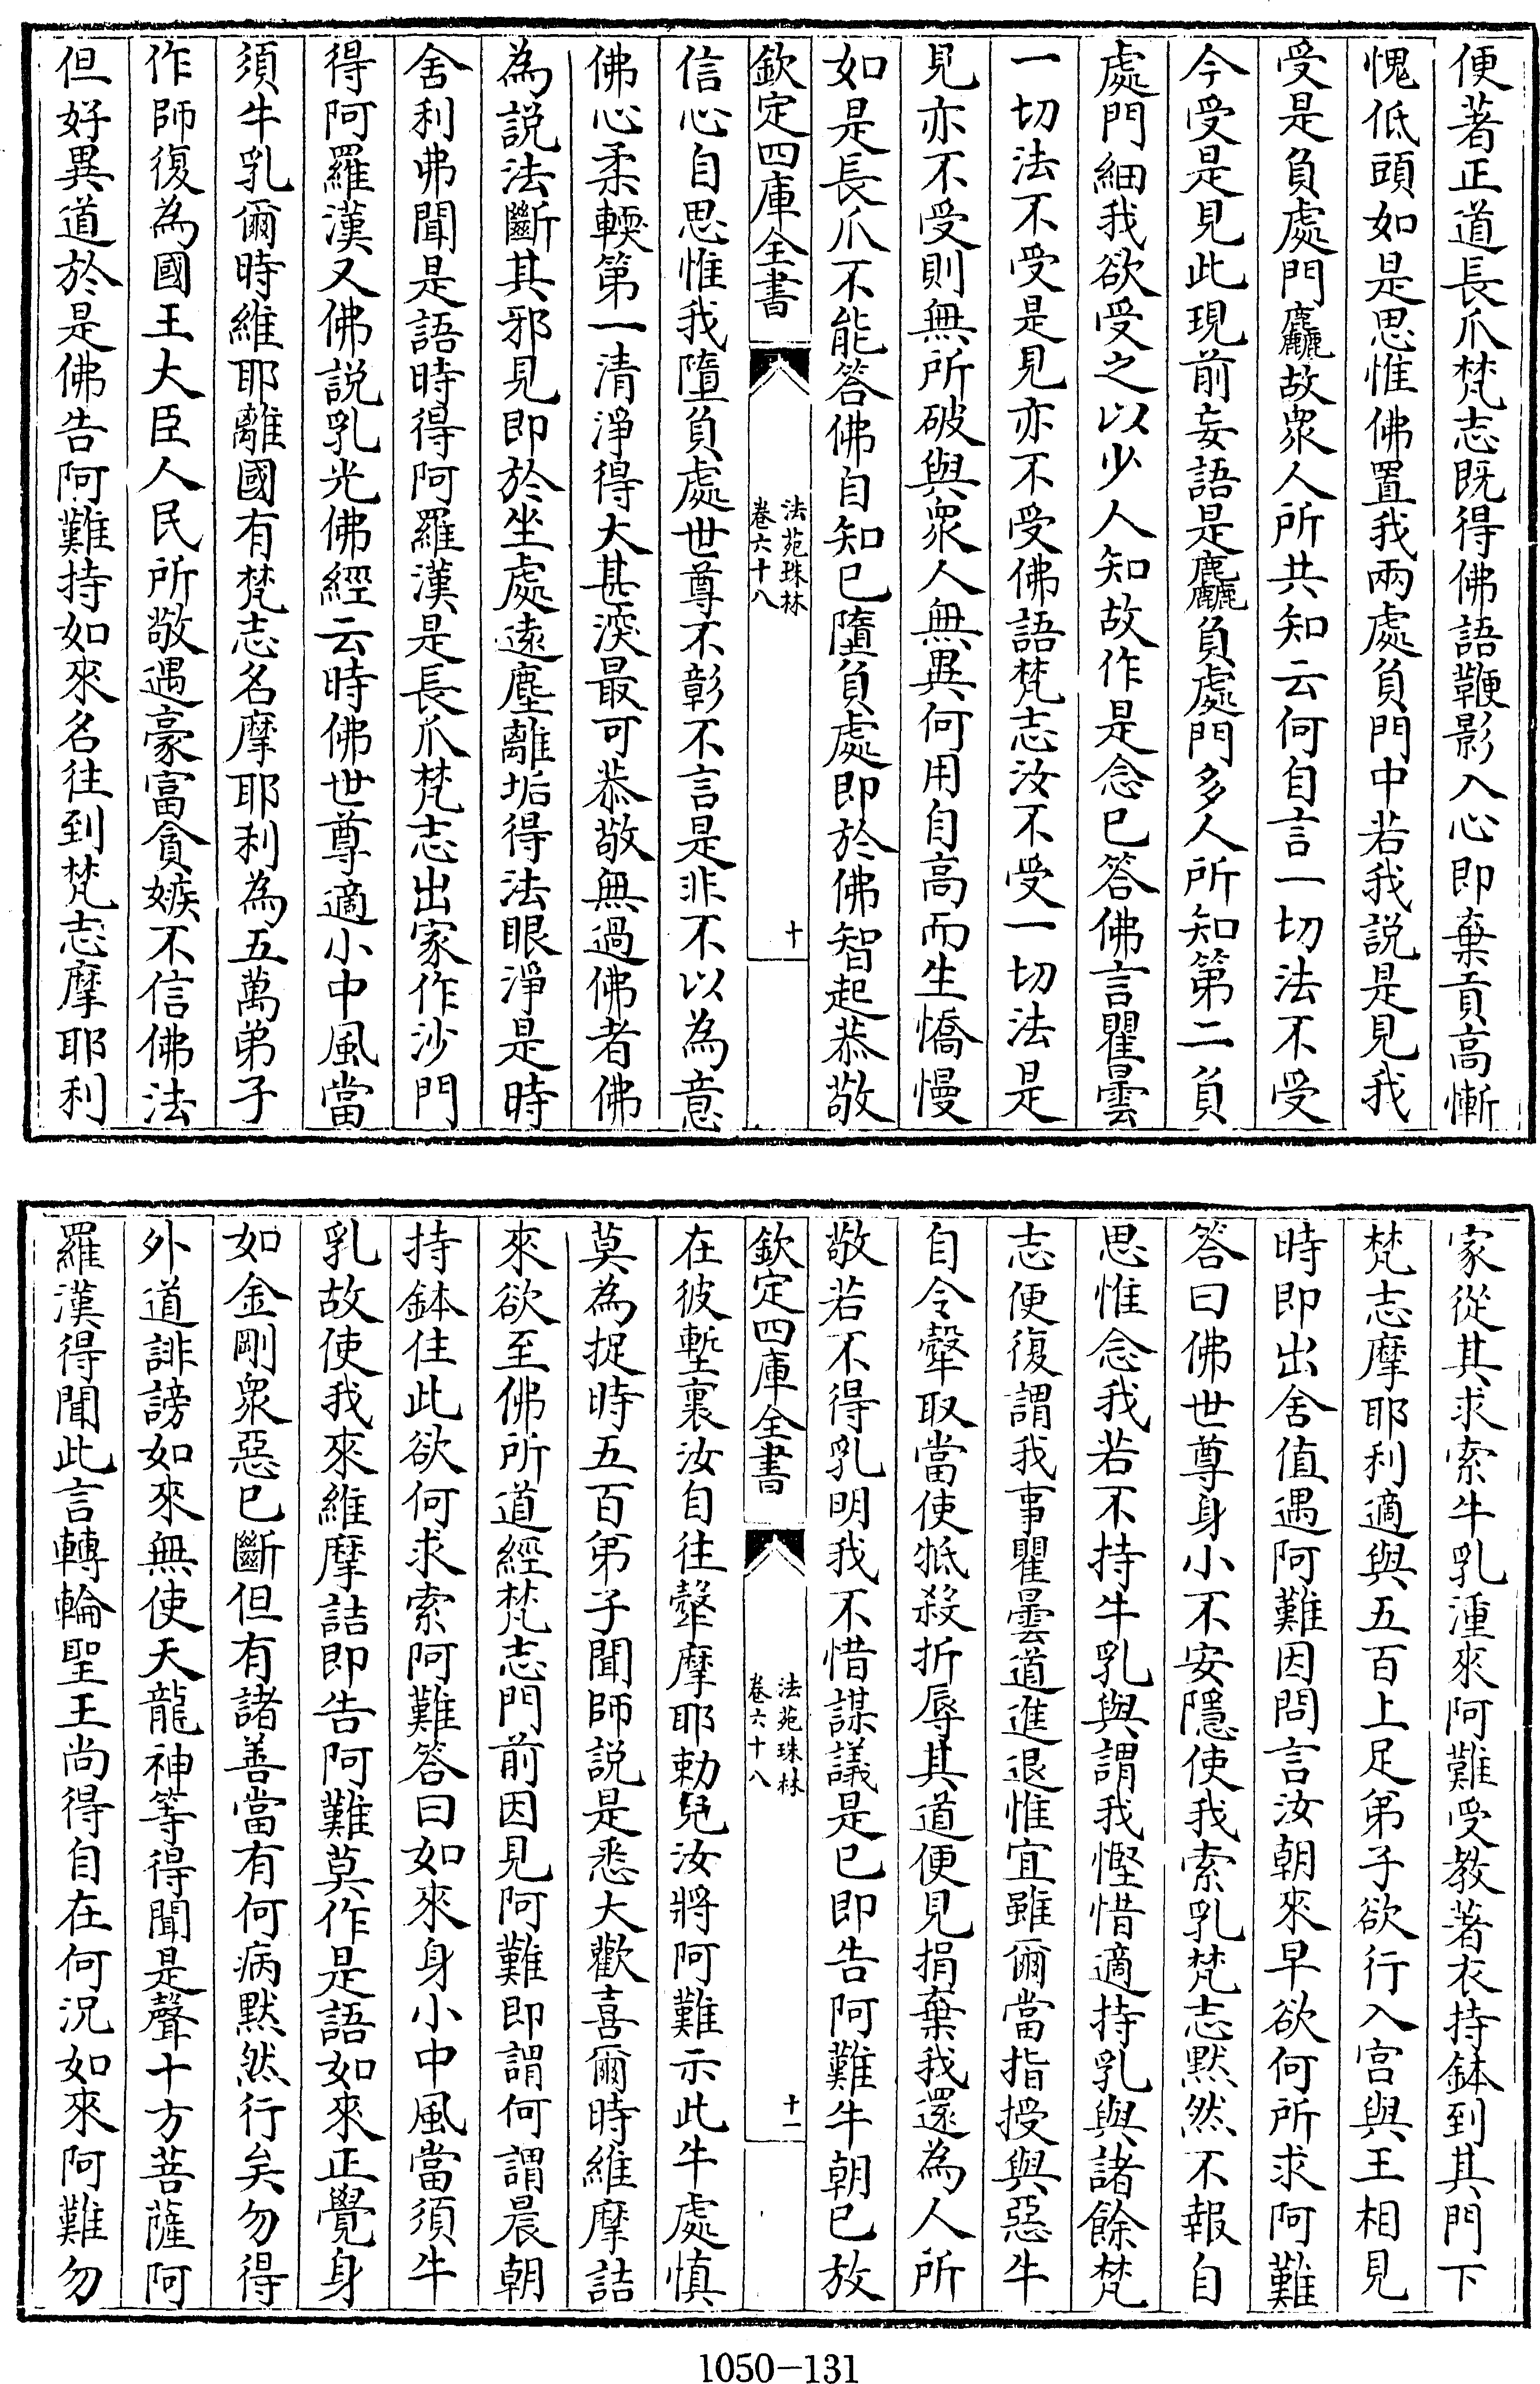 便著正道長爪梵志既得佛語鞭影入心即棄貢高慚
愧低頭如是思惟佛置我兩處負門中若我説是見我
受是負處門麤故衆人所共知云何自言一切法不受
今受是見此現前妄語是麤負處門多人所知第二負
處門細我欲受之以少人知故作是念已答佛言瞿曇
一切法不受是見亦不受佛語梵志汝不受一切法是
見亦不受則無所破與衆人無異何用自高而生憍慢
如是長爪不能答佛自知已墮負處即於佛智起恭敬
欽定四庫全書
法苑珠林
卷六十八
十
信心自思惟我墮負處世尊不彰不言是非不以為意
佛心柔輭第一清淨得大甚深最可恭敬無過佛者佛
為説法斷其邪見即於坐處遠塵離垢得法眼淨是時
舍利弗聞是語時得阿羅漢是長爪梵志出家作沙門
得阿羅漢又佛説乳光佛經云時佛世尊適小中風當
須牛乳爾時維耶離國有梵志名摩耶利為五萬弟子
作師復為國王大臣人民所敬遇豪富貪嫉不信佛法
但好異道於是佛告阿難持如來名往到梵志摩耶利
家從其求索牛乳湩來阿難受教著衣持鉢到其門下
梵志摩耶利適與五百上足弟子欲行入宫與王相見
時即出舍值遇阿難因問言汝朝來早欲何所求阿難
答曰佛世尊身小不安隱使我索乳梵志默然不報自
思惟念我若不持牛乳與謂我慳惜適持乳與諸餘梵
志便復謂我事瞿曇道進退惟宜雖爾當指授與惡牛
自令犛取當使觝殺折辱其道便見捐棄我還為人所
敬若不得乳明我不惜謀議是已即告阿難牛朝已放
欽定四庫全書
法苑珠林
卷六十八
十一
在彼塹裏汝自往犛摩耶勅兒汝將阿難示此牛處慎
莫為捉時五百弟子聞師説是悉大歡喜爾時維摩詰
來欲至佛所道經梵志門前因見阿難即謂何謂晨朝
持鉢住此欲何求索阿難答曰如來身小中風當須牛
乳故使我來維摩詰即告阿難莫作是語如來正覺身
如金剛衆惡已斷但有諸善當有何病默然行矣勿得
外道誹謗如來無使天龍神等得聞是聲十方菩薩阿
羅漢得聞此言轉輪聖王尚得自在何況如來阿難勿
1050-131